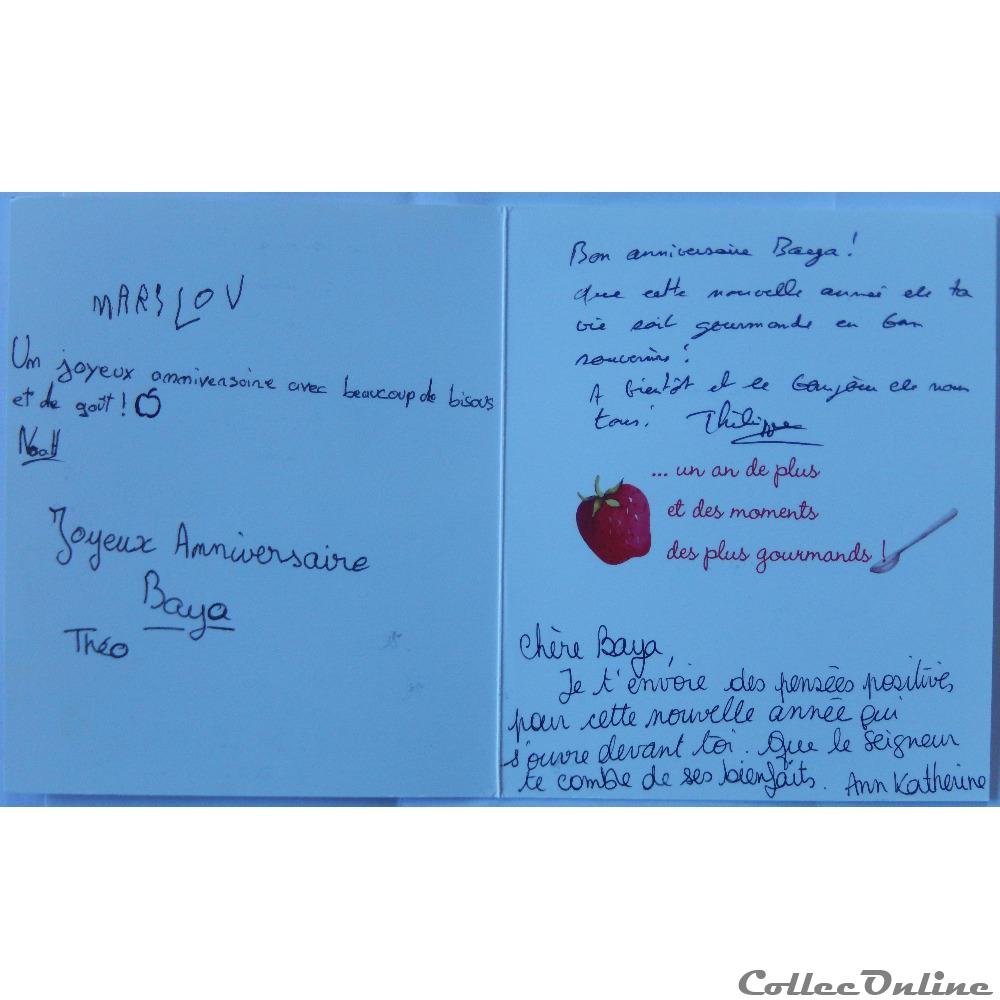 MARSLOV
Un joyeux anniversaire avec beaucoup de bisous
et de goût !
NoaH
Joyeux Anniversaire
Baya
Théo
Bon anniversaire Baya !
Que cette nouvelle année de ta
vie soit gourmande en bon
souvenirs !
A bientôt et le bonjour de nous
tous ! Philippe
... un an de plus
et des moments
des plus gourmands !
Chère Baya,
Je t'envoie des pensées positives
pour cette nouvelle année qui
s'ouvre devant toi. Que le Seigneur
te comble de ses bienfaits. Ann Katherine
CollecOnline